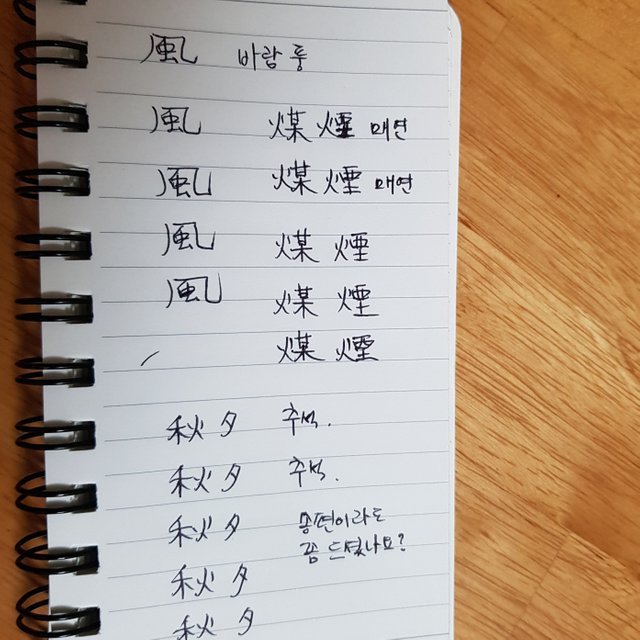 風 바람 풍
風 煤煙 매연
風 煤煙 매연
風 煤煙
風 煤煙
煤煙
秋夕 추석.
秋夕 추석.
秋夕 송편이라도
좀 드셨나요?
秋夕
秋夕